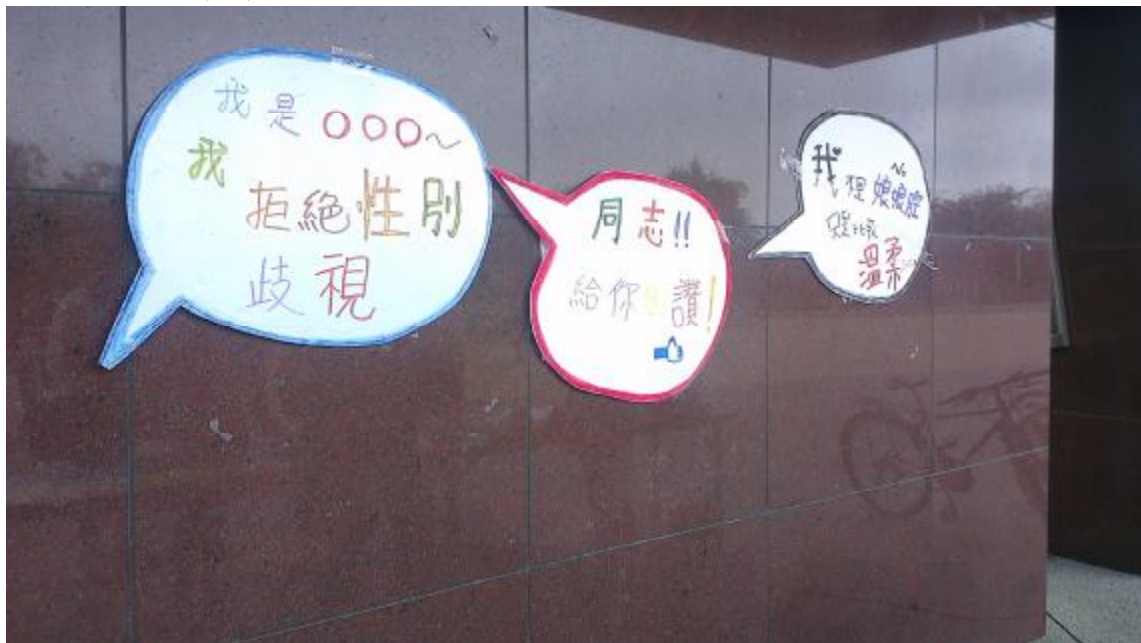 我是OOO~
我
拒絕性別
歧視
同志!!
給你個讚!
我
不是娘娘腔
只是比較
溫柔